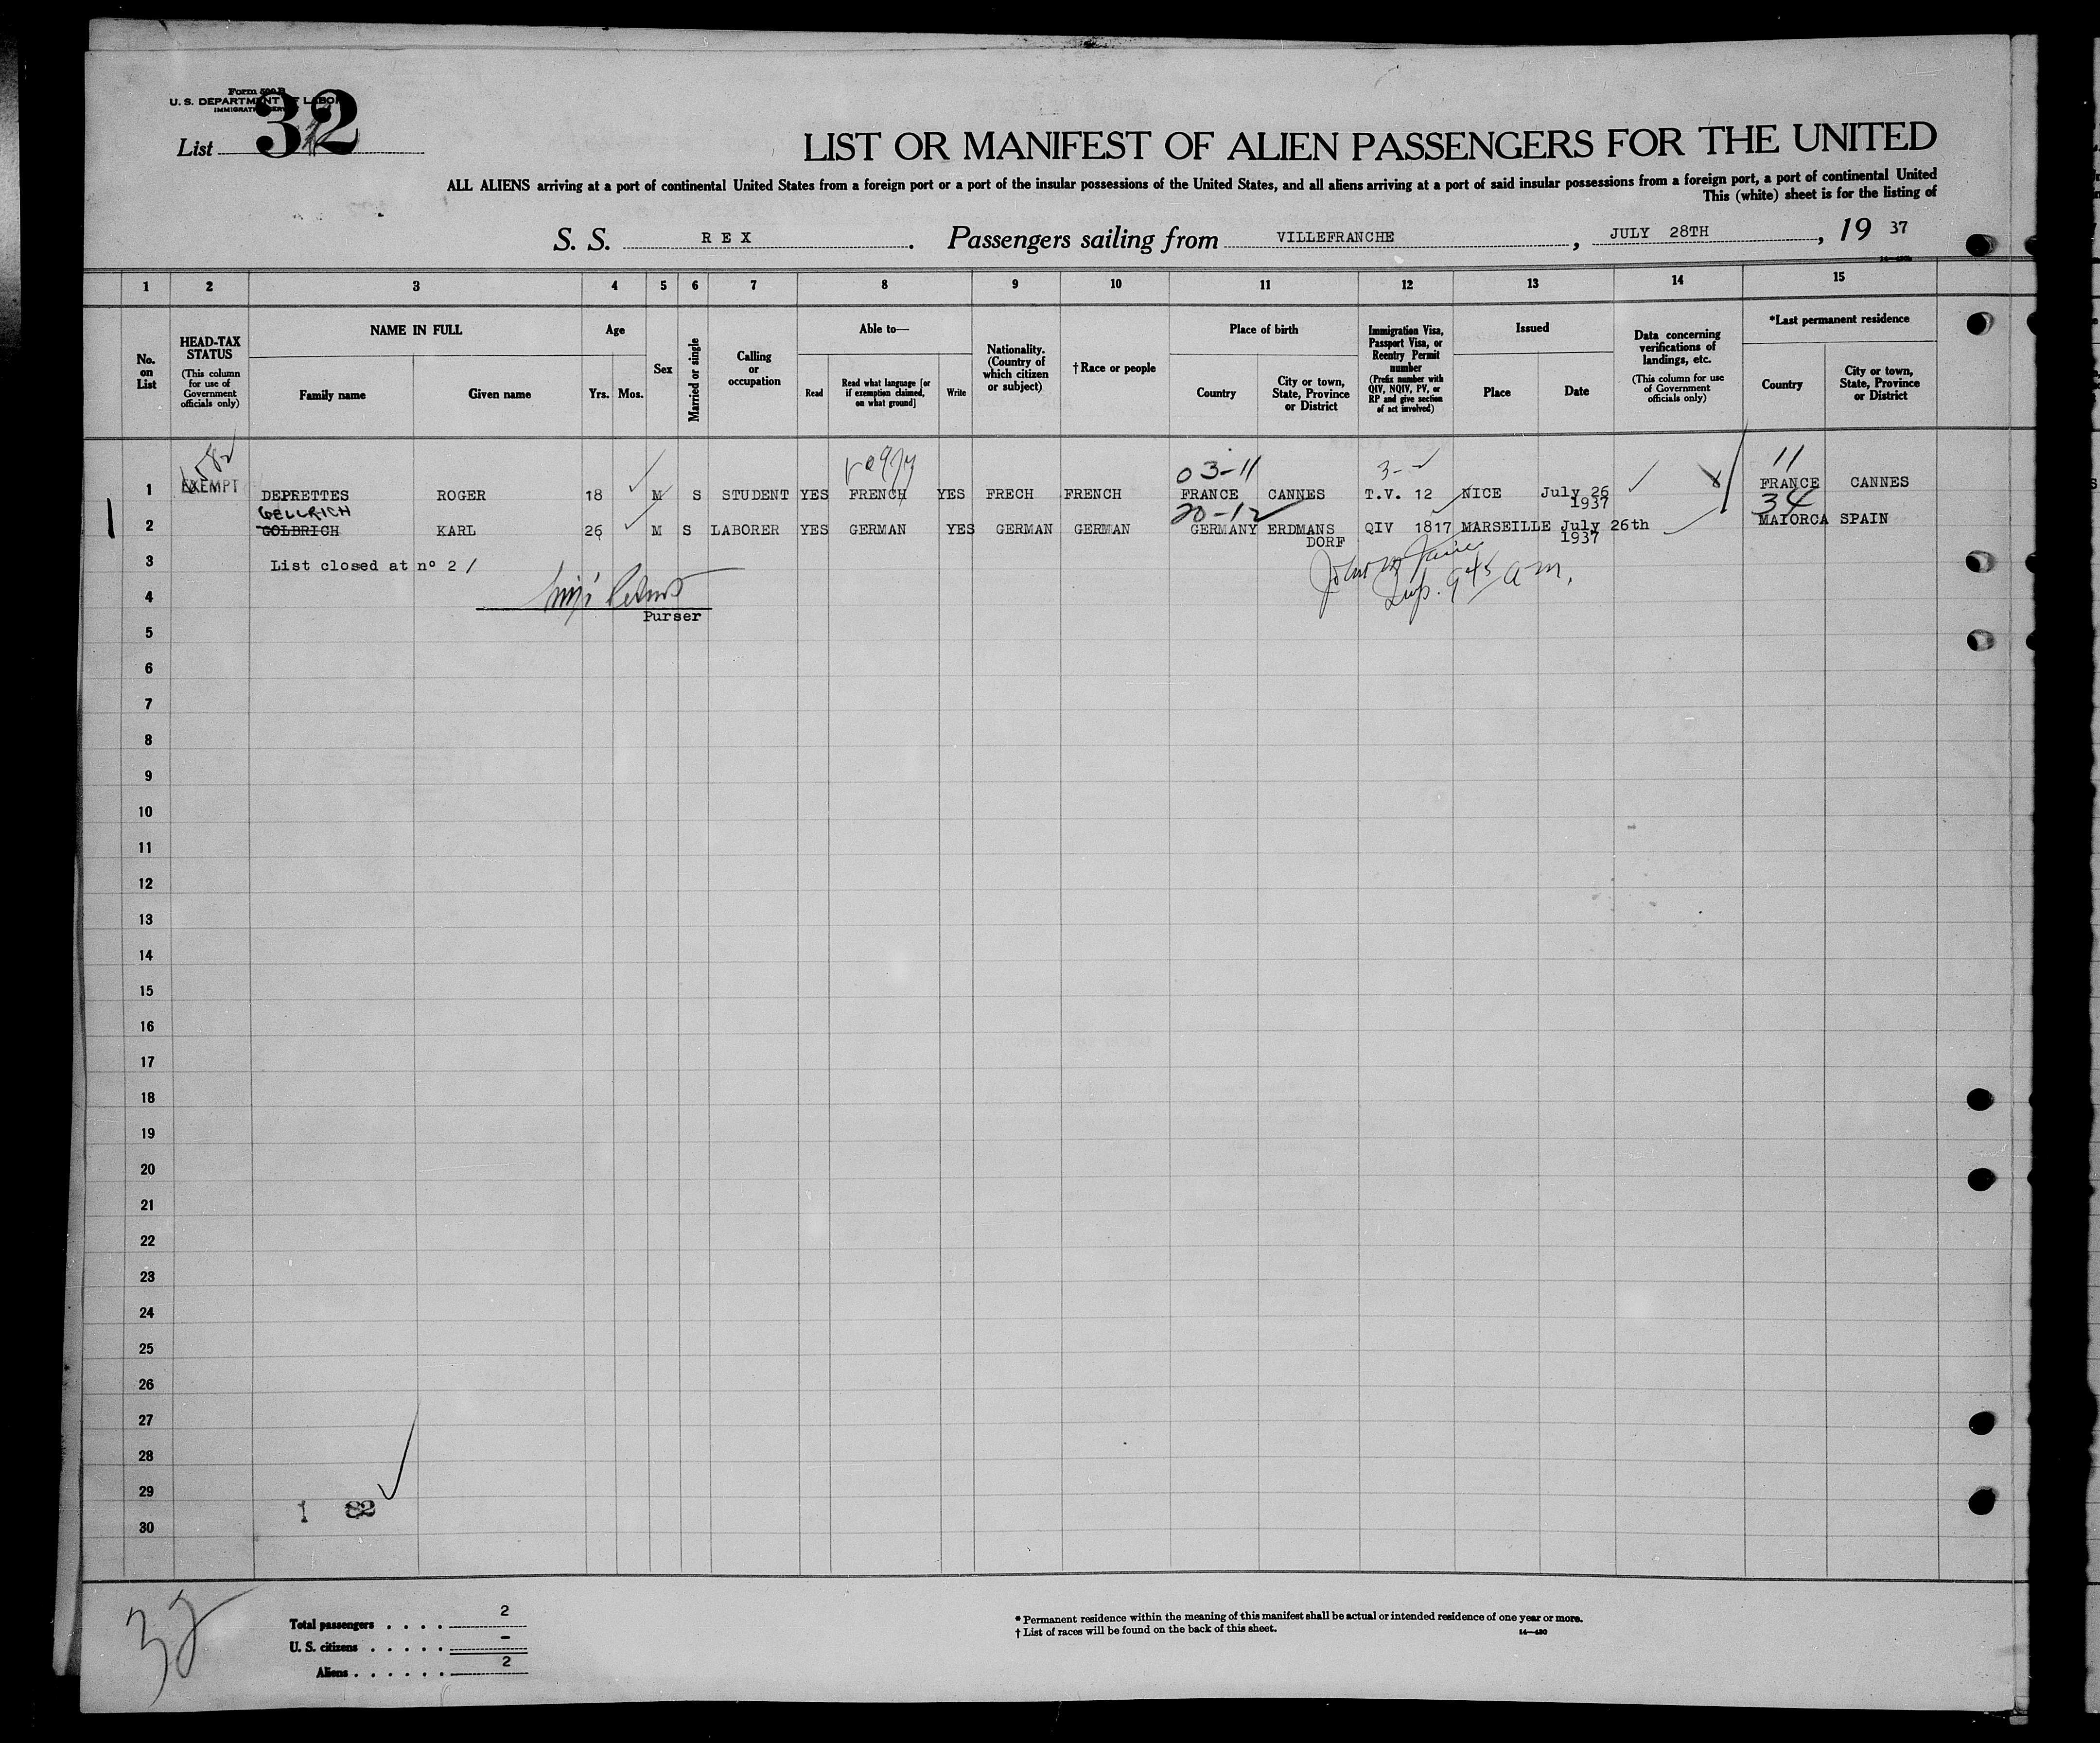 Form 500 B
U. S. DEPARTMENT OF LABOR
IMMIGRATION SERVICE
List 32
LIST OR MANIFEST OF ALIEN PASSENGERS FOR THE UNITED
ALL ALIENS arriving at a port of continental United States from a foreign port or a port of the insular possessions of the United States, and all aliens arriving at a port of said insular possessions from a foreign port, a port of continental United
This (white) sheet is for the listing of
S. S. REX. Passengers sailing from VILLEFRANCHE, JULY 28TH, 19 37
1 2 3 4 5 6 7 8 9 10 11 12 13 14 15
No. on List
HEAD-TAX STATUS (This column for use of Government officials only)
NAME IN FULL
Family name Given name
Age
Yrs. Mos.
Sex
Married or single
Calling or occupation
Able to—
Read
Read what language [or if exemption claimed, on what ground]
Write
Nationality. (Country of which citizen or subject)
† Race or people
Place of birth
Country
City or town, State, Province or District
Immigration Visa, Passport Visa, or Reentry Permit number (Prefix number with QIV, NQIV, PV, or RP and give section of act involved)
Issued
Place Date
Data concerning verifications of landings, etc. (This column for use of Government officials only)
*Last permanent residence
Country
City or town, State, Province or District
03-11 3- 11
1 EXEMPT DEPRETTES ROGER 18 M S STUDENT YES FRENCH YES FRECH FRENCH FRANCE CANNES T.V. 12 NICE July 26 1937 FRANCE CANNES
GELLRICH 20-12 34
2 GOLBRICH KARL 26 M S LABORER YES GERMAN YES GERMAN GERMAN GERMANY ERDMANS DORF QIV 1817 MARSEILLE July 26th 1937 MAIORCA SPAIN
3 List closed at nº 2 /
Insp. 9 45 a m.
4
Purser
5
6
7
8
9
10
11
12
13
14
15
16
17
18
19
20
21
22
23
24
25
26
27
28
29
1 82
30
32
Total passengers . . . . 2
U. S. citizens . . . . . -
Aliens . . . . . . 2
* Permanent residence within the meaning of this manifest shall be actual or intended residence of one year or more.
† List of races will be found on the back of this sheet.
14—430